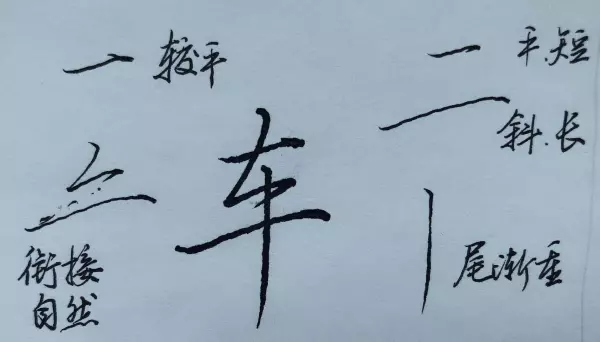 一 较平
车
二 平.短
斜.长
衔接
自然
尾渐重